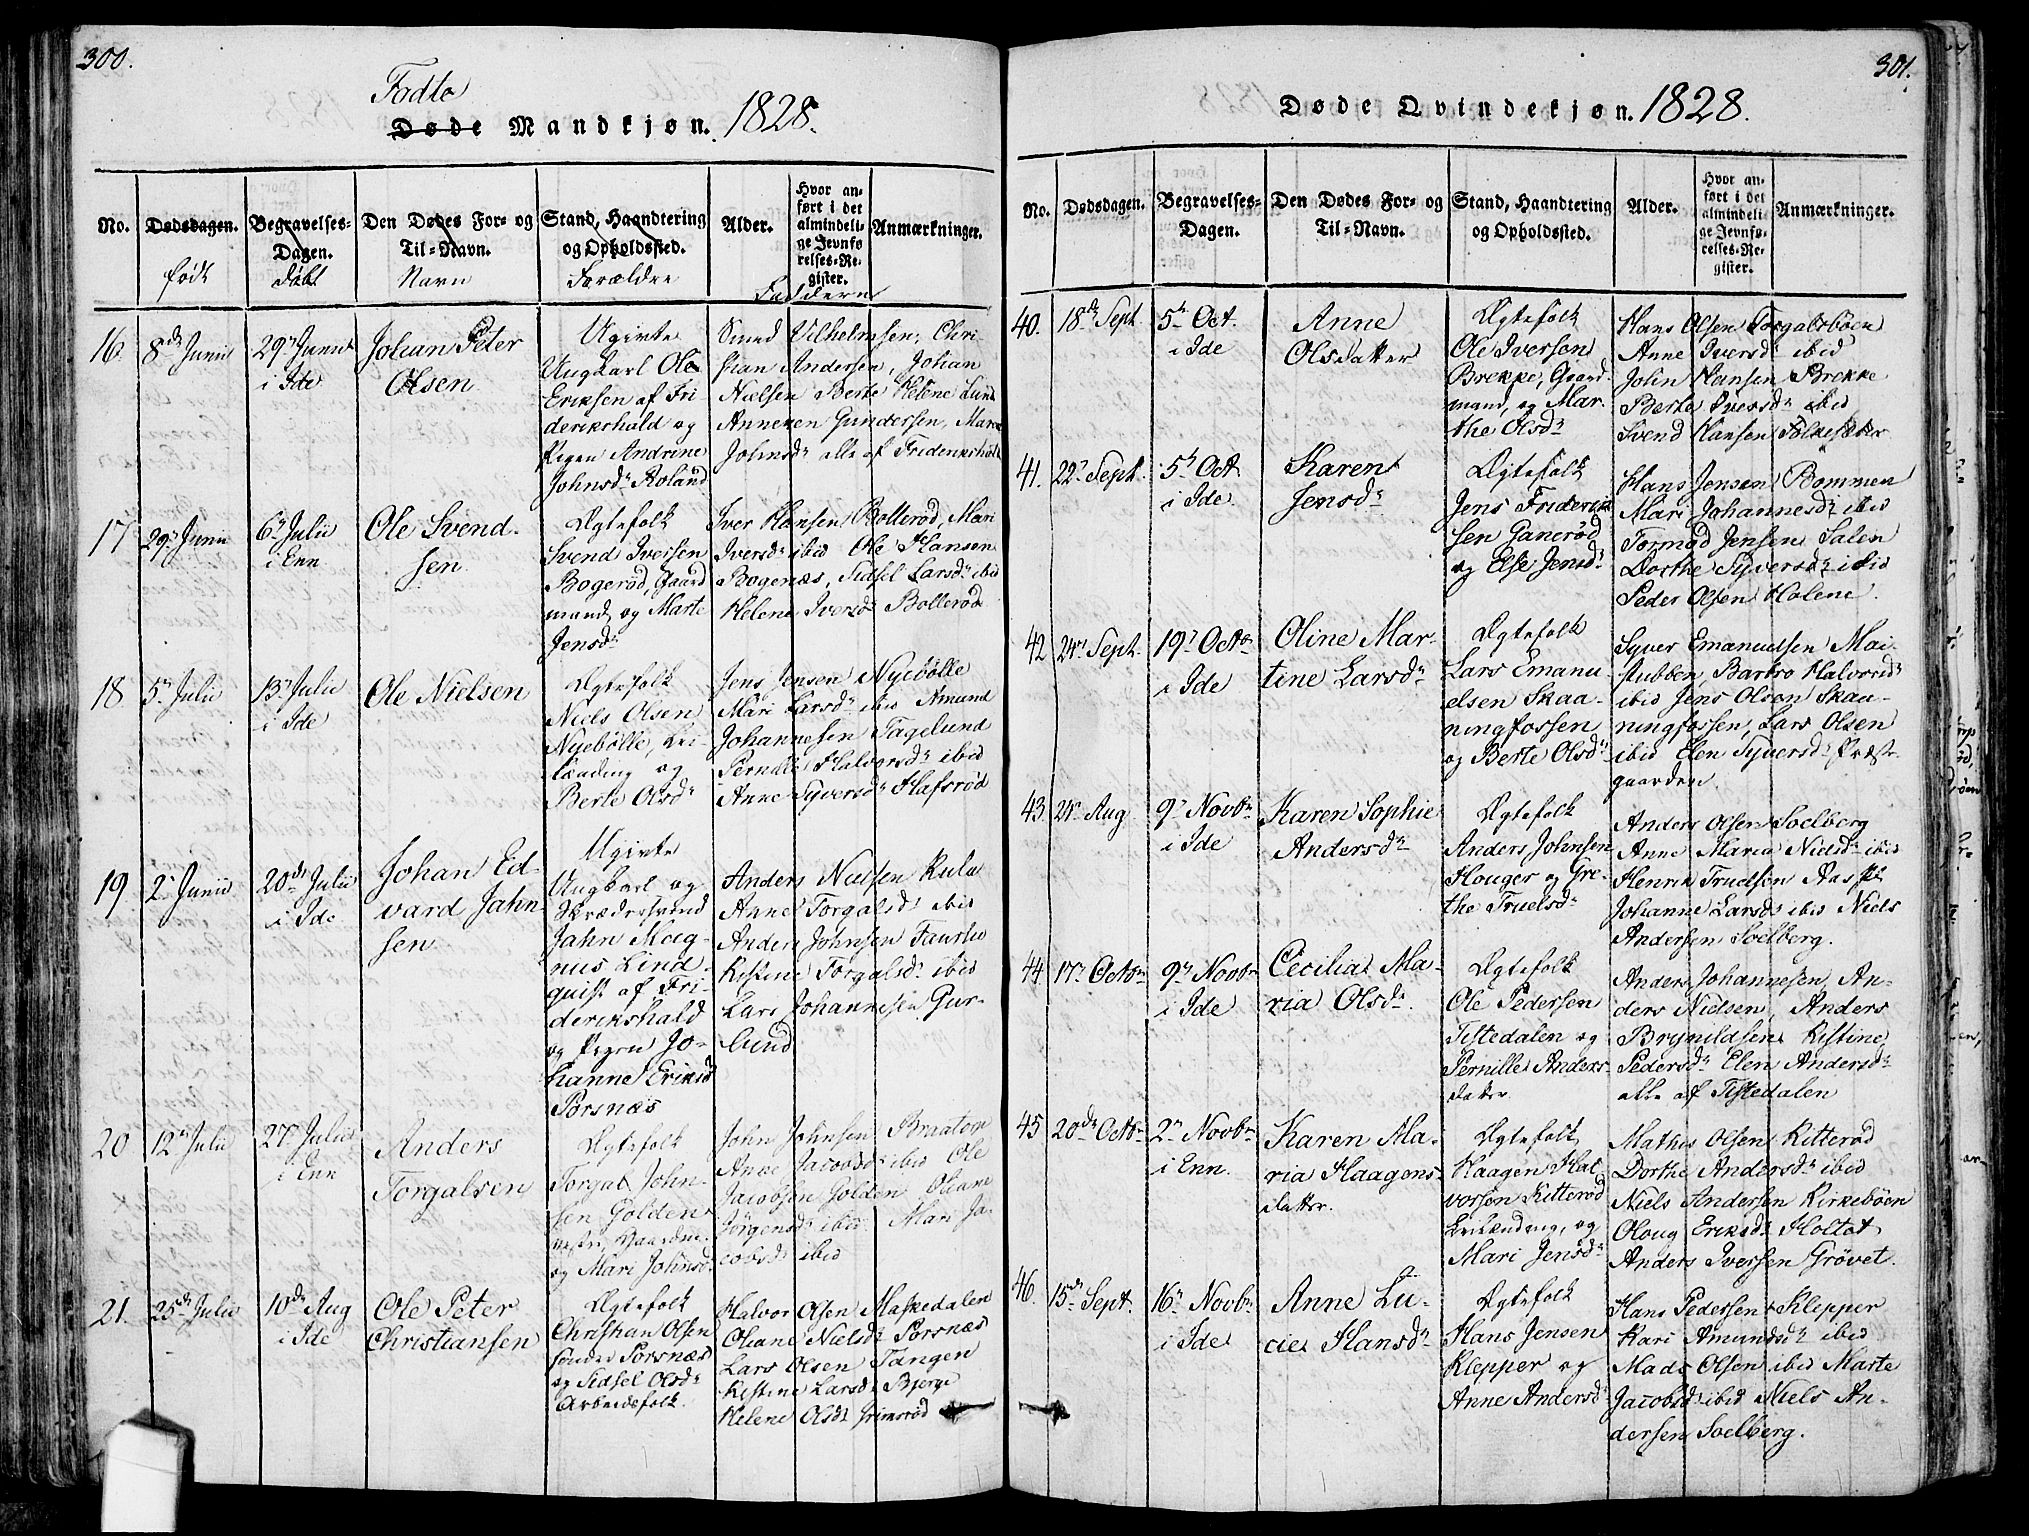 300.
Fødte
Døde Mandkjøn. 1828.
No.
Dødsdagen.
født
Begravelses-
Dagen.
døbt
Den Dødes For- og
Til-Navn.
Navn
Stand, Haandtering
og Opholdssted.
Forældre
Alder.
Hvor an-
ført i det
almindeli-
ge Jevnfø
relses-Re-
gister.
Anmærkninger.
Faddern
16.
8de Junii
29n Junii
i Ide
Johan Peter
Olsen
Ugivte
Ungkarl Ole
Eriksen af Fri
derikshald og
Pigen Andrine
Johnsdr Roland
Smed Vilhelmsen, Chri-
stian Andersen, Johan
Nielsen Berte Helene Lund
Anneken Gundersen, Maren
Johnsdr alle af Friderikshald
17
29n Junii
6n Julii
i Enn
Ole Svend-
sen
Ægtefolk
Svend Iversen
Bogerød, Gaard
mand og Marte
Jensdr
Iver Hansen Bollerød, Mari
Iversdr ibid Ole Hansen
Bogenæs, Sidsel Larsdr ibid
Helene Iversdr Bollerød
18
5n Julii
13n Julii
i Ide
Ole Nielsen
Ægtefolk
Niels Olsen
Nyebølle, Lei-
lænding og
Berte Olsdr
Jens Jensen Nyebølle
Mari Larsdr ibid Amund
Johannesen Fagelund
Pernille Halvorsdr ibid
Anne Syversdr Hafsrød
19
2n Junii
20de Julii
i Ide
Johan Ed-
vard Jahn-
sen
Ugivte
Ungkarl og
Skrædersvend
Jahn Mag-
nus Lind-
quist af Fri-
derikshald
og Pigen Jo-
hanne Eriksd
Porsnæs
Anders Nielsen Kula
Anne Torgalsdr ibid
Anders Johnsen
Kistine Torgalsdr ibid
Lars Johannesen Gur-
lund
20
12te Julii
27n Julii
i Enn
Anders
Torgalsen
Ægtefolk
Torgal John-
sen Golden
og Mari Johnsd.
John Johnsen Braaton
Anne Jacobsdr ibid Ole
Jacobsen Golden
Jørgensdr ibid Mari Ja-
cobsdr ibid
21.
25de Julii
10de Aug
i Ide
Ole Peter
Christiansen
Ægtefolk
Christian Olsen
søndre Porsnæs
og Sidsel Olsdr
Arbeidsfolk.
Halvor Olsen Maskedalen
Oliane Nielsdr Porsnæs
Lars Olsen Tangen
Kistine Larsdr Bjerge
Helene Olsdr Grimsrød
301.
Døde Qvindekjøn. 1828.
No.
Dødsdagen.
Begravelses-
Dagen.
Den Dødes For- og
Til-Navn.
Stand, Haandtering
og Opholdssted.
Alder.
Hvor an-
ført i det
almindeli-
ge Jevnfø-
relses-Re-
gister.
Anmærkninger.
40.
18de Sept.
5te Oct.
i Ide
Anne
Olsdatter
Ægtefolk
Ole Iversen
Brekke, Gaard
mand, og Mar-
the Olsdr
Hans Olsen Torgalsbøen
Anne Iversdr ibid
John Hansen Brekke
Berte Iversdr ibid
Svend Hansen Folkesæter
41.
22n Sept.
5te Oct
i Ide.
Karen
Jensdr
Ægtefolk
Jens Friderik
sen Ganerød
og Else Jensdr
Hans Jensen Bommen
Mari Johannesdr ibid
Tormod Jensen Salen
Dorthe Syversdr ibid
Peder Olsen Holene.
42
24n Sept.
19n Octbr
i Ide
Oline Mar-
tine Larsdr
Ægtefolk
Lars Emanu-
elsen Skaa-
ningfossen
og Berte Olsdr
Syver Emanuelsen Mai-
stubben, Barbro Halvorsdr
ibid Jens Olsen Skaa-
ningfossen, Lars Olsen
ibid Elen Syversdr Præst-
gaarden.
43.
24n Aug
9n Novbr
i Ide
Karen Sophie
Andersdr
Ægtefolk
Anders Johnsen
Houger og Gre-
the Truelsdr
Anders Olsen Soelberg
Anne Maria Nielsdr ibid
Henrik Truelsen Aaspl
Johanne Larsdr ibid Niels
Andersen Soelberg.
44
17n Octbr
9n Novbr
i Ide
Cecilia Ma-
ria Olsdr
Ægtefolk
Ole Pedersen
Tistedalen og
Pernille Anders-
datter
Anders Johannesen, An-
ders Nielsen, Anders
Brynildsen, Kistine
Pedersdr Elen Andersdr
alle af Tistedalen
45
20de Octbr
2n Novbr
i Enn.
Karen Ma-
ria Haagens-
datter.
Ægtefolk
Haagen Hal-
vorsen Kitterød
Leilænding, og
Mari Jensdr
Mathis Olsen Kitterød
Dorthe Andersdr ibid
Niels Andersen Kirkebøen
Oloug Eriksdr Holtet
Anders Iversen Grøvet.
46.
15de Sept.
16n Novbr
i Ide
Anne Lu-
cie Hansdr
Ægtefolk
Hans Jensen
Klepper og
Anne Andersdr
Hans Pedersen Klepper
Kari Amundsdr ibid
Mads Olsen ibid Marte
Jacobsdr ibid Niels An-
dersen Soelberg.